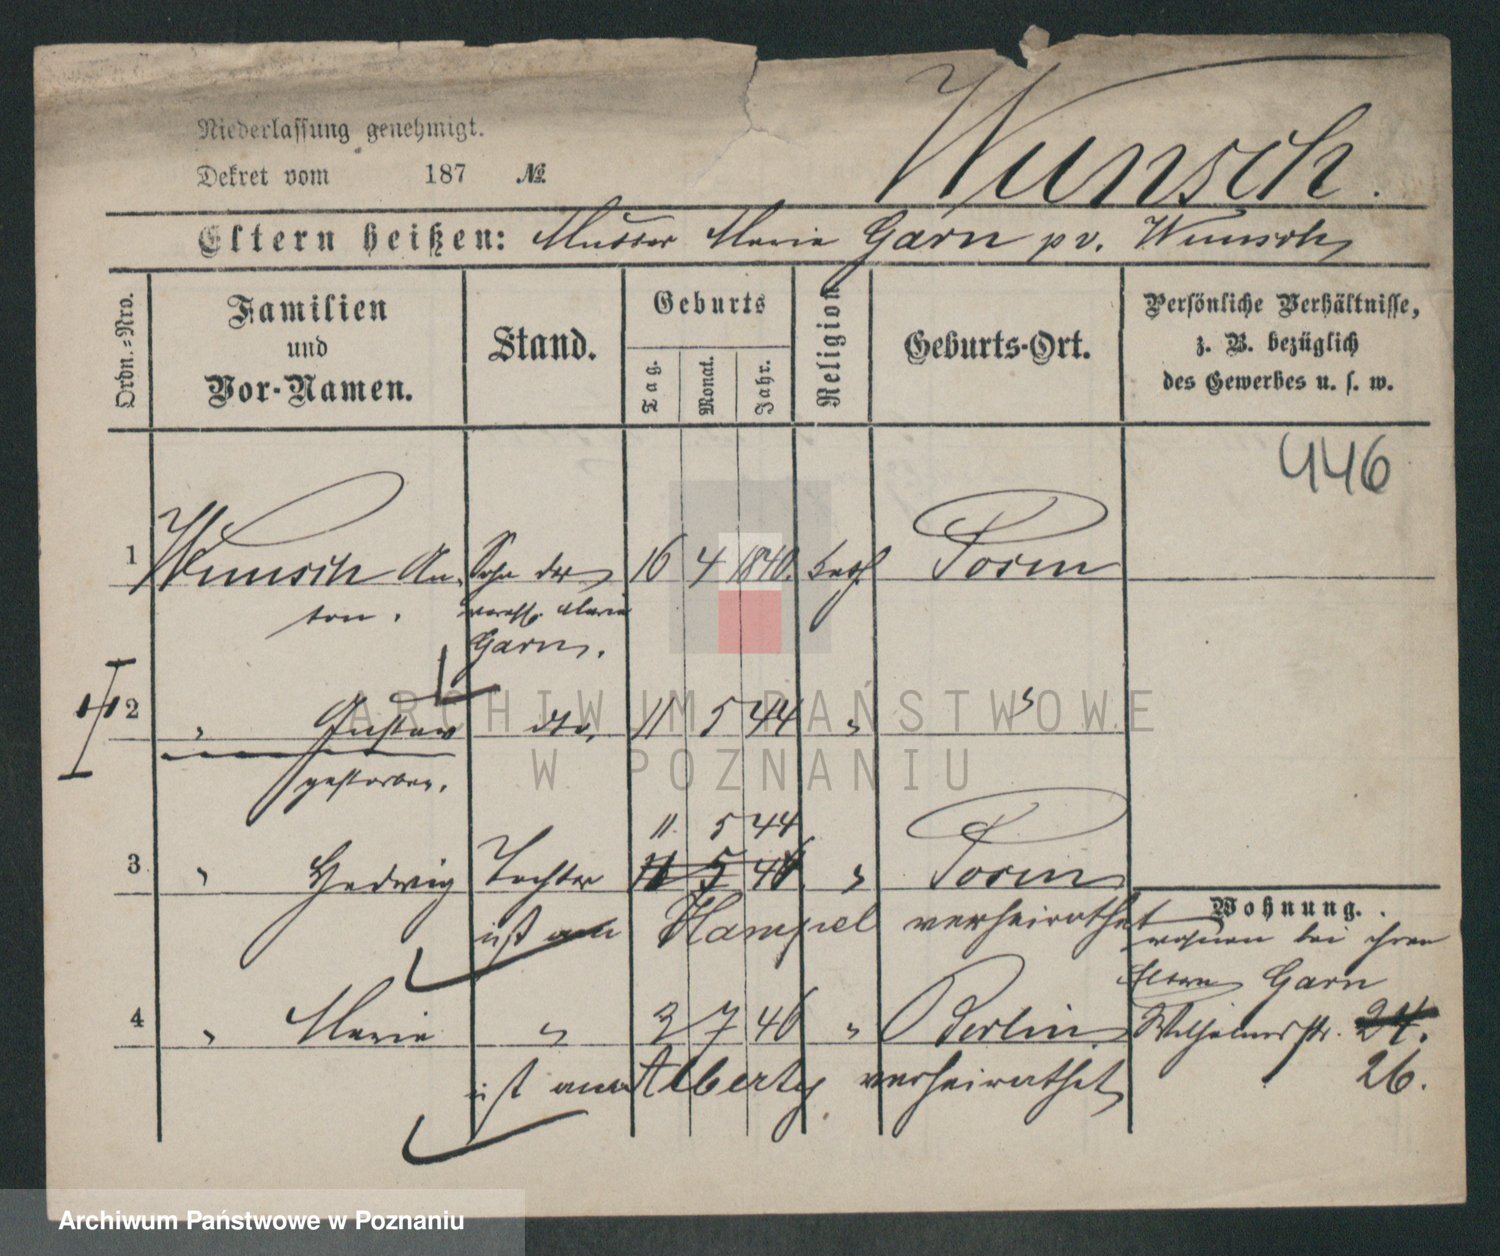 Wunsch.
Niederlassung genehmigt.
Dekret vom 187 №
Eltern heißen: Mutter Marie Garn pv. Wunsch
Ordn.-Nro.
Familien
und
Vor-Namen.
Stand.
Geburts
Tag.
Monat.
Jahr.
Religion
Geburts-Ort.
Persönliche Verhältnisse,
z. B. bezüglich
des Gewerbes u. s. w.
446
1 Wunsch An- Sohn der 16 4 1840. kath. Posen
ton. Marie
Garn.
ARCHIWUM PAŃSTWOWE
W POZNANIU
2 " Gustav dto. 11 5 44 " "
gestorben.
11. 5 44
3 " Hedwig Tochter 11 5 46 " Posen
ist an Hampel verheirathet
Wohnung.
wohnen bei ihren
Eltern Garn
4 " Marie " 3 7 46 " Berlin. Wilhelmsstr. 24.
ist an Alberty verheirathet 26.
Archiwum Państwowe w Poznaniu